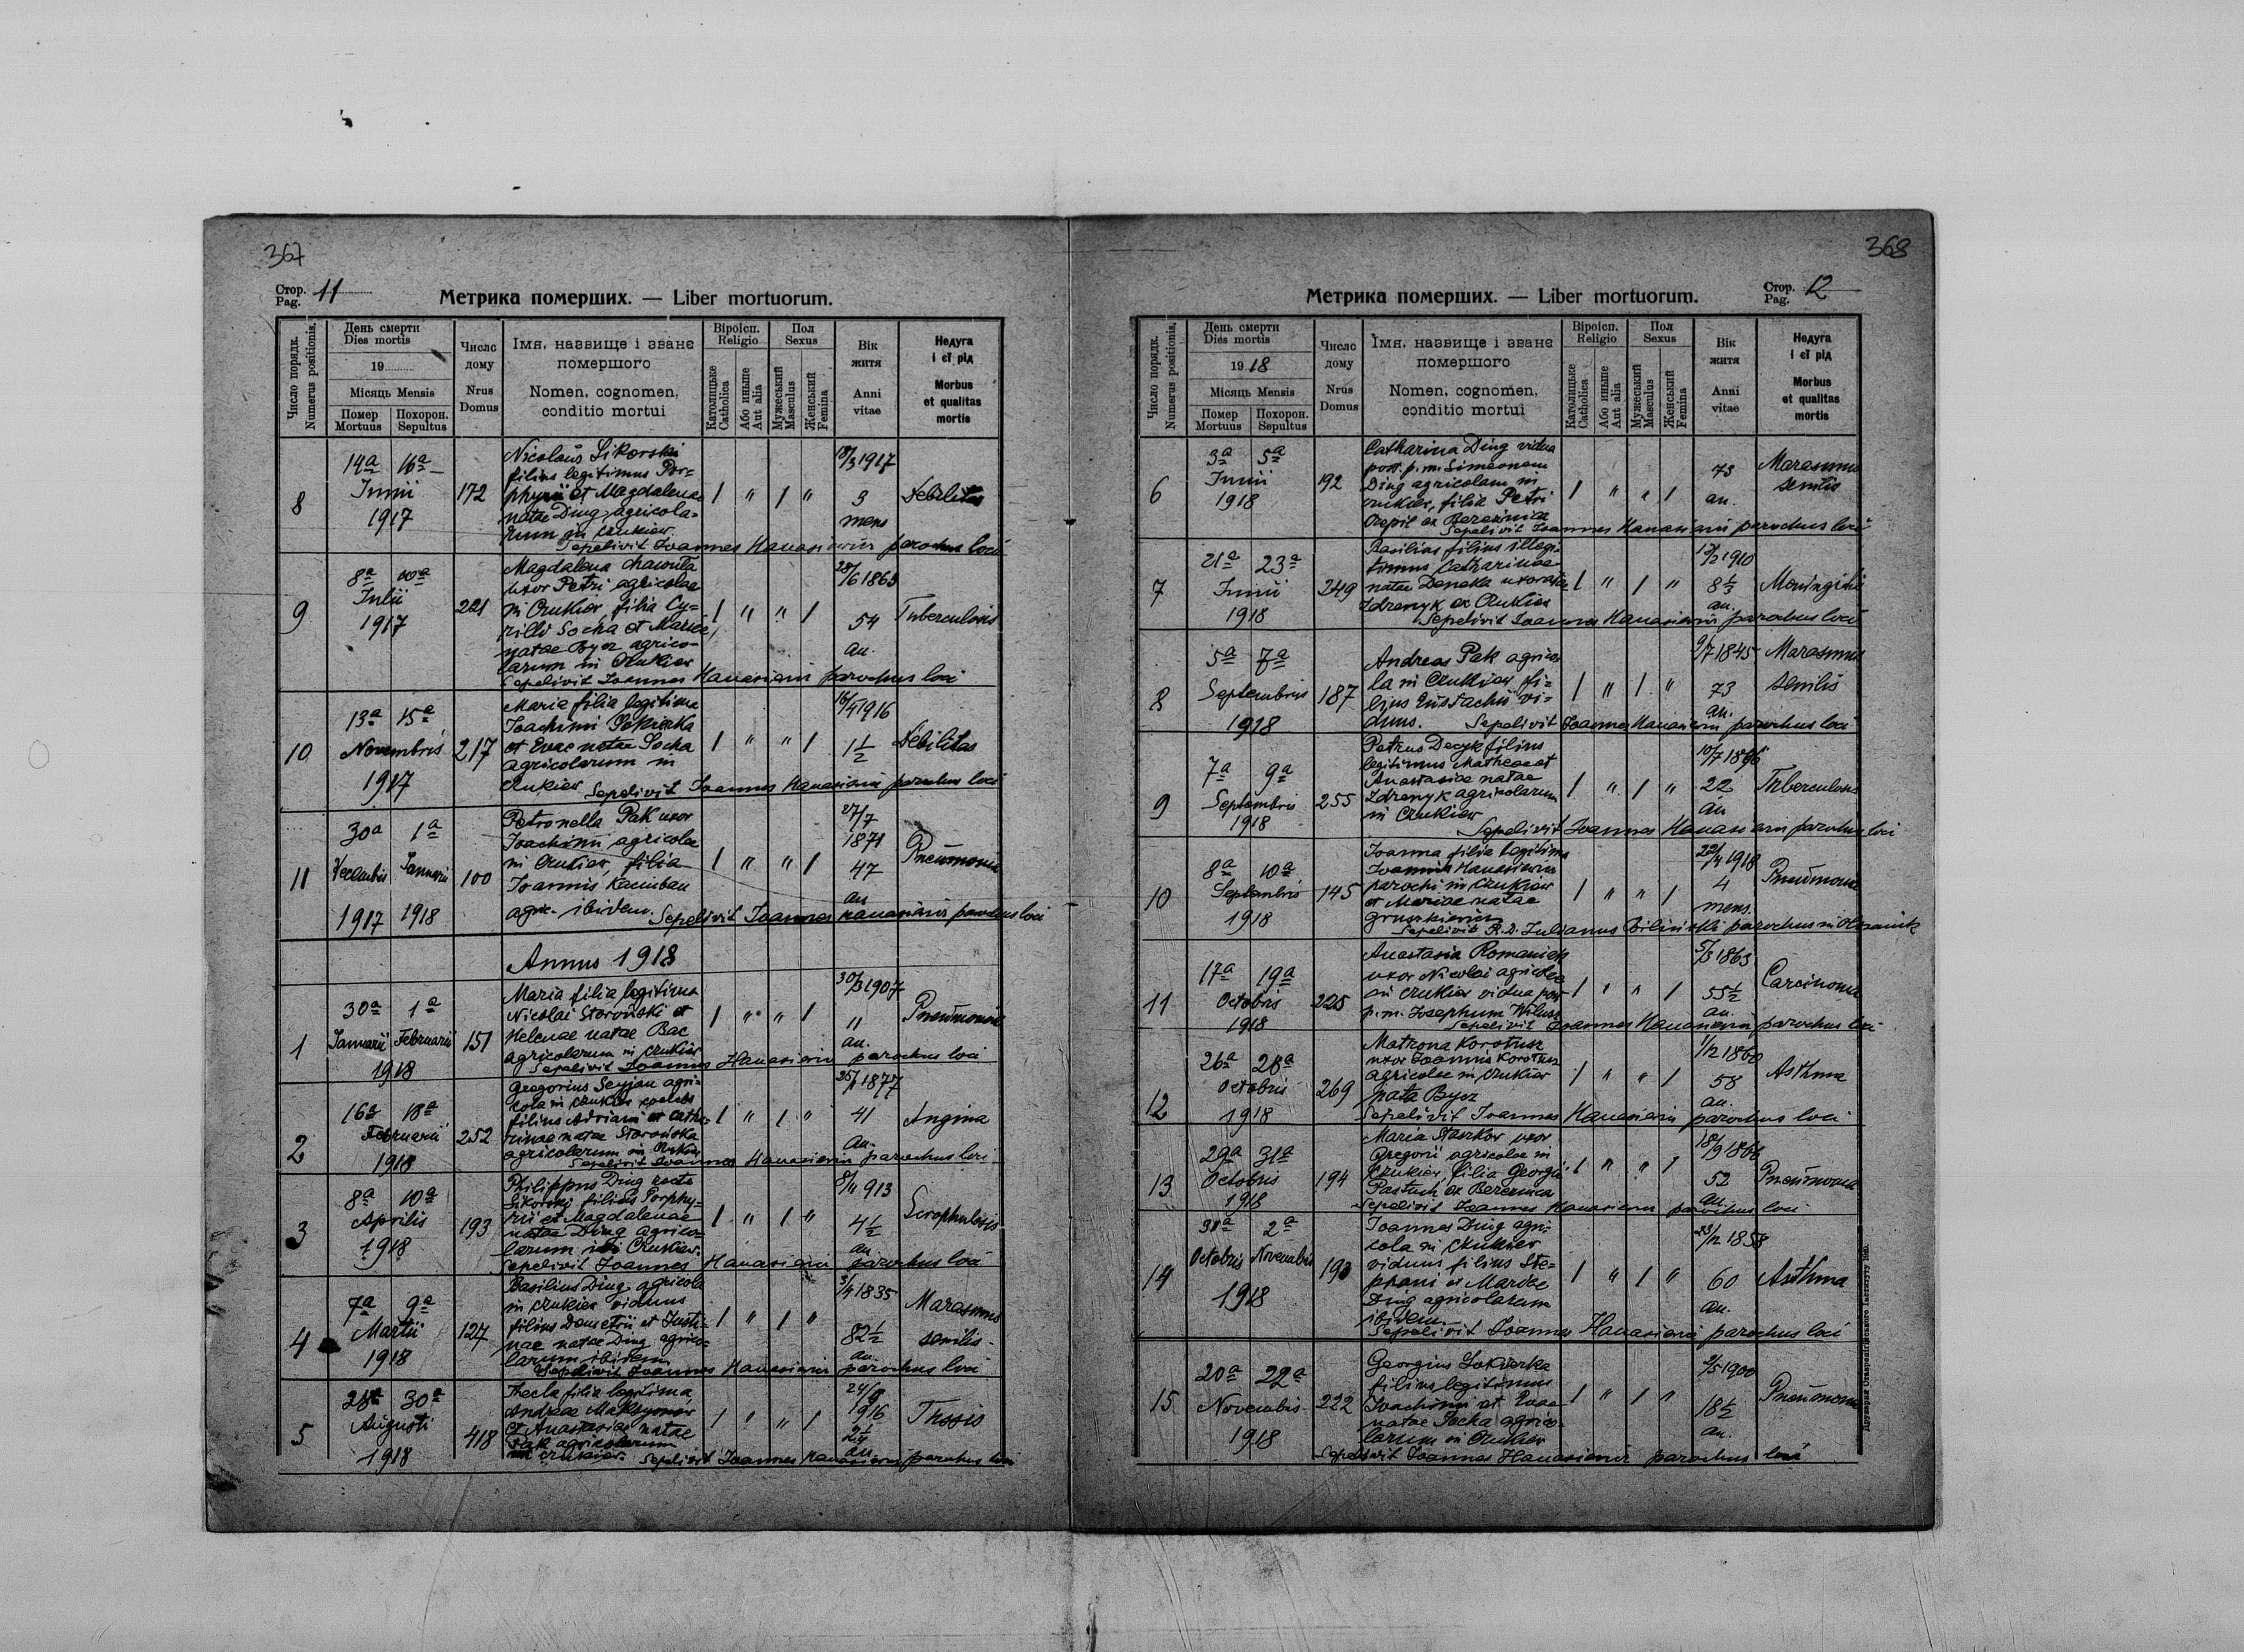 367
Стор. Pag. 11
Метрика померших. — Liber mortuorum.
Число порядк. Numerus positionis.
День смерти
Dies mortis
19
Місяць Mensis
Помер Mortuus
Похорон. Sepultus
Число дому
Nrus Domus
Імя, назвище і званє
помершого
Nomen, cognomen,
conditio mortui
Віроісп. Religio
Католицьке Catholica
Або иньше Aut alia
Пол Sexus
Мужеський Masculus
Женський Femina
Вік житя
Anni vitae
Недуга і єї рід
Morbus et qualitas mortis
8
14a 16a
Junii
1917
172
Nicolaus Sikorski
filius legitimus Por-
phyrii et Magdalenae
natae Ding agricola-
rum in Czukiew.
Sepelivit Joannes Hanasiewicz parochus loci
1 " 1 "
18/3 1917
3
mens
Debilitas
9
8a 10a
Julii
1917
221
Magdalena
uxor Petri agricolae
in Czukiew, filia Cy-
rilli Socha et Mariae
natae Bycz agrico-
larum in Czukiew
Sepelivit Joannes Hanasiewicz parochus loci
1 " " 1
54
an.
Tuberculosis
10
13a 15a
Novembris
1917
217
Maria filia legitima
Joachimi
et Evae natae Socha
agricolarum in
Czukiew Sepelivit Joannes Hanasiewicz parochus loci
1 " " 1
16/4 1916
1 1/2
Debilitas
11
30a 1a
Decembris Januarii
1917 1918
100
Petronella Pak uxor
Joachimi agricolae
in Czukiew, filia
Joannis
agric. ibidem. Sepelivit Joannes Hanasiewicz parochus loci
1 " " 1
27/7
1871
47
an
Pneumonia
Annus 1918
1
30a 1a
Januarii Februarii
1918
151
Maria filia legitima
Nicolai Storoński et
Helenae natae Bac
agricolarum in Czukiew
Sepelivit Joannes Hanasiewicz parochus loci
1 " " 1
30/3 1907
11
an.
Pneumonia
2
16a 18a
Februarii
1918
252
Gregorius agri-
cola in Czukiew coelebs
filius Adriani et Catha-
rinae natae Storońska
agricolarum in Czukiew
Sepelivit Joannes Hanasiewicz parochus loci
1 " 1 "
25/1 1877
41
an.
Angina
3
8a 10a
Aprilis
1918
193
Philippus Ding recte
Sikorski filius Porphy-
rii et Magdalenae
natae Ding agrico-
larum in Czukiew.
Sepelivit Joannes Hanasiewicz parochus loci
1 " 1 "
8/11 913
4 1/2
an
Scrophulosis
4
7a 9a
Martii
1918
127
Basilius Ding agricola
in Czukiew viduus
filius Demetrii et Justi-
nae natae Ding agrico-
larum ibidem
Sepelivit Joannes Hanasiewicz parochus loci
1 " 1 "
82 1/2
an.
Marasmus
senilis.
5
28a 30a
Augusti
1918
418
Thecla filia legitima
Andreae Maksymow
et Anastasiae natae
Pak agricolarum
in Czukiew. Sepelivit Joannes Hanasiewicz parochus loci
1 " " 1
1916
2 1/4
an
Tussis
368
Стор. Pag. 12
Метрика померших. — Liber mortuorum.
Число порядк. Numerus positionis.
День смерти
Dies mortis
1918
Місяць Mensis
Помер Mortuus
Похорон. Sepultus
Число дому
Nrus Domus
Імя, назвище і званє
помершого
Nomen, cognomen,
conditio mortui
Віроісп. Religio
Католицьке Catholica
Або иньше Aut alia
Пол Sexus
Мужеський Masculus
Женський Femina
Вік житя
Anni vitae
Недуга і єї рід
Morbus et qualitas mortis
6
3a 5a
Junii
1918
192
Catharina Ding vidua
post p. m. Simeonem
Ding agricolam in
Czukiew, filia Petri
Czepil ex Bereźnica
Sepelivit Joannes Hanasiewicz parochus loci
1 " " 1
73
an.
Marasmus
senilis
7
21a 23a
Junii
1918
249
Basilius filius illegi-
timus Catharinae
natae Daneka uxoratae
Zdrenyk ex Czukiew
Sepelivit Joannes Hanasiewicz parochus loci
1 " 1 "
8 1/3
an.
Meningitis
8
5a 7a
Septembris
1918
187
Andreas Pak agrico-
la in Czukiew fi-
lius Eustachii vi-
duus. Sepelivit Joannes Hanasiewicz parochus loci
1 " 1 "
9/7 1845
73
an.
Marasmus
senilis
9
7a 9a
Septembris
1918
255
Petrus Decyk filius
legitimus Mathaei et
Anastasiae natae
Zdrenyk agricolarum
in Czukiew
Sepelivit Joannes Hanasiewicz parochus loci
1 " 1 "
10/7 1896
22
an
Tuberculosis
10
8a 10a
Septembris
1918
145
Joanna filia legitima
Joannis Hanasiewicz
parochi in Czukiew
et Mariae natae
Gruszkiewicz
Sepelivit R. D. Julianus Biliński parochus in
1 " " 1
22/4 1918
4
mens.
Pneumonia
11
17a 19a
Octobris
1918
225
Anastasia Romaniak
uxor Nicolai agricolae
in Czukiew vidua post
p. m. Josephum
Sepelivit Joannes Hanasiewicz parochus loci
1 " " 1
5/3 1863
55 1/2
an.
Carcinoma
12
26a 28a
Octobris
1918
269
Matrona Korotusz
uxor Joannis Korotusz
agricolae in Czukiew
nata Bycz
Sepelivit Joannes Hanasiewicz parochus loci
1 " " 1
1/12 1860
58
an.
Asthma
13
29a 31a
Octobris
1918
194
Maria Staszkow uxor
Gregorii agricolae in
Czukiew, filia Georgii
Pastuch ex Bereźnica
Sepelivit Joannes Hanasiewicz parochus loci
1 " " 1
18/9 1866
52
an.
Pneumonia
14
31a 2a
Octobris Novembris
1918
193
Joannes Ding agri-
cola in Czukiew
viduus filius Ste-
phani et Mariae
Ding agricolarum
ibidem.
Sepelivit Joannes Hanasiewicz parochus loci
1 " 1 "
23/12 1858
60
an.
Asthma
15
20a 22a
Novembris
1918
222
Georgius
filius legitimus
Joachimi et Evae
natae Socha agrico-
larum in Czukiew
Sepelivit Joannes Hanasiewicz parochus loci
1 " 1 "
2/5 1900
18 1/2
an.
Pneumonia